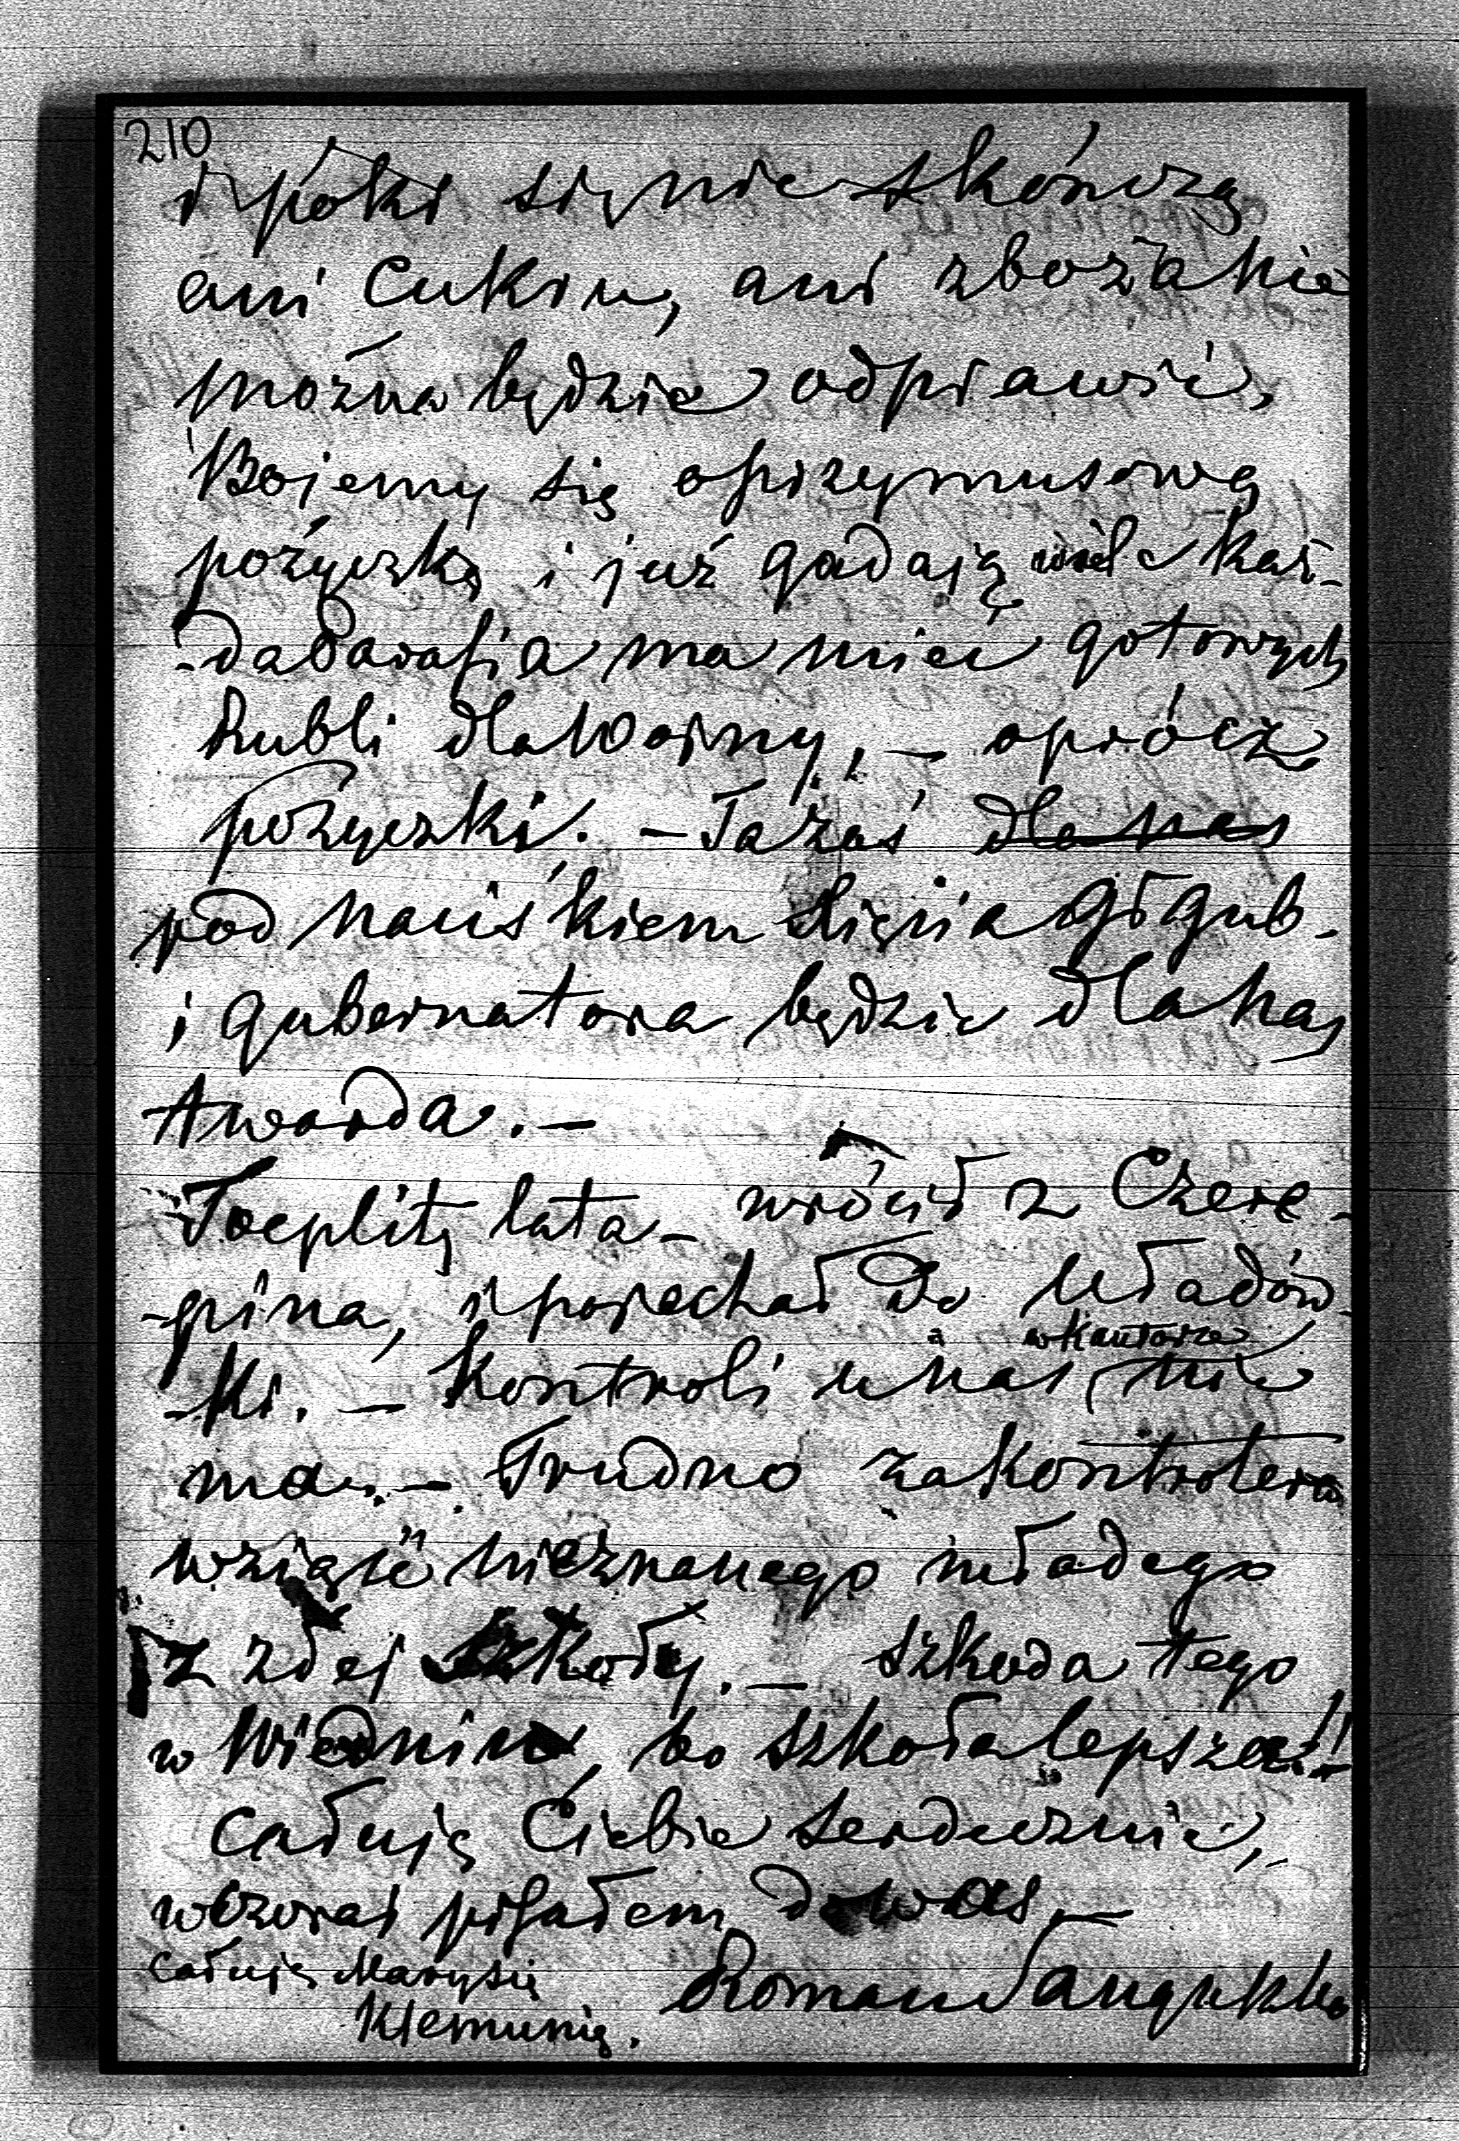 210
i póki się nie skończą
ani Cukru, ani zboża nie
można będzie odprawić,
Bojemy się o przymusową
pożyczkę i już gadają wiele kaź-
-da Parafia ma mieć gotowych
Rubli dla Wojny, — oprócz
pożyczki. — Ta zaś dla nas
pod naciskiem Xięcia Gł gub-
i gubernatora będzie dla nas
twarda. —
Toeplitz lata — wrócił z Czere-
-pina, i pojechał do Władów-
-ki. — Kontroli u nas w Kantorze nie
ma. — Trudno za kontrolera
wziąść nieznanego młodego
z złej szkoły. — szkoda tego
w Wiedniu, bo szkoła lepsza!!
Całuję Ciebie serdecznie,
wczoraj pisałem do was —
Całuję Marysię
Klemunię.
Roman Sanguszko